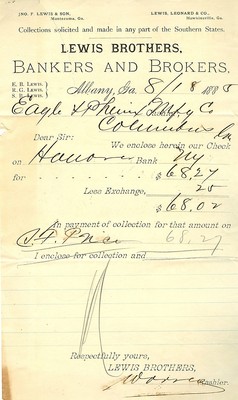 JNO. F. LEWIS & SON, LEWIS, LEONARD & CO.,
Montezuma, Ga. Hawkinsville, Ga.
Collections solicited and made in any part of the Southern States.
LEWIS BROTHERS,
BANKERS AND BROKERS,
E. B. LEWIS,
R. G. LEWIS,
LEWIS.
Albany, Ga. 8/18 1888
Eagle & Phenix Mfg Co
Columbus Ga
Dear Sir: We enclose herein our Check
on Hanover Bank NY
for $68.27
Less Exchange, 25
$68.02
In payment of collection for that amount on
68.27
I enclose for collection and
Respectfully yours,
LEWIS BROTHERS,
Cashier.